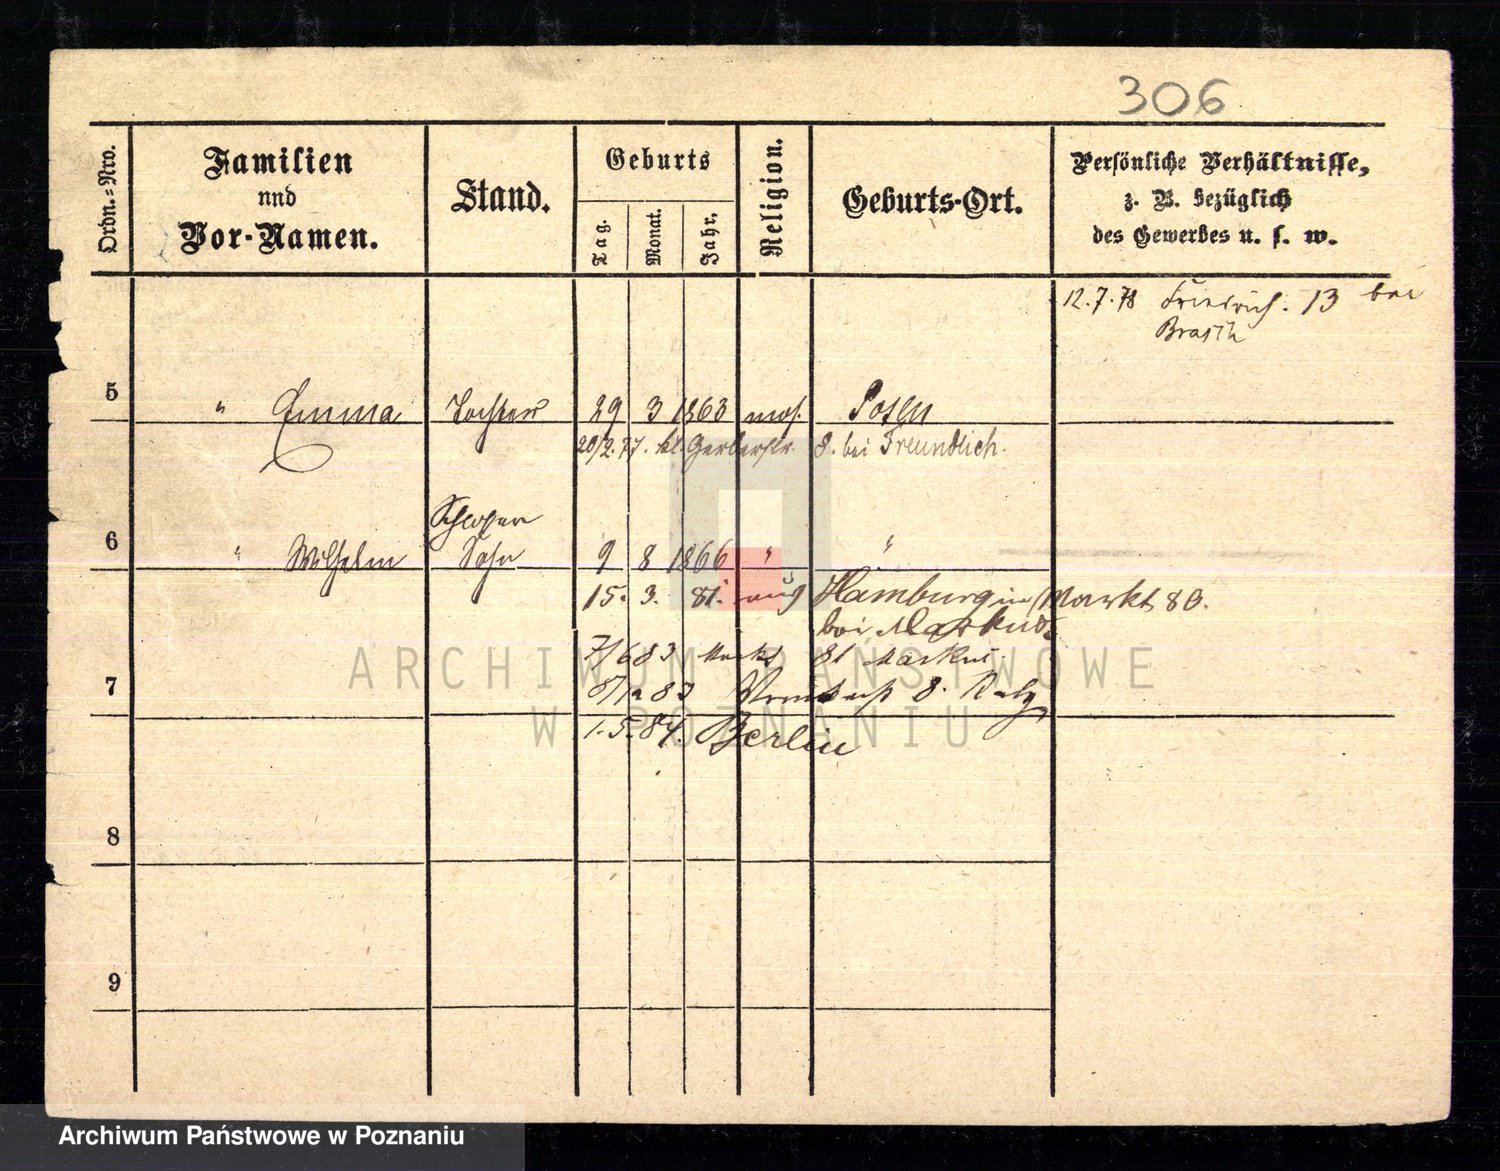 306
Ordn.=Nro.
Familien
und
Vor-Namen.
Stand.
Geburts
Tag.
Monat.
Jahr.
Religion.
Geburts-Ort.
Persönliche Verhältnisse,
z. B. bezüglich
des Gewerbes u. s. w.
12.7.78 Friedrich. 13 bei
Brasch
5 " Emma Tochter 29 3 1863 mos. Posen
20/2.77. kl. Gerberstr. 8. bei Freundlich.
Schlosser
6 " Wilhelm Sohn 9 8 1866 " "
15. 3. 81. aus Hamburg in Markt 80.
bei Markus
7/6 83 Markt 81 Markus
7
8. Katz
1.5.84. Berlin
8
9
ARCHIWUM PAŃSTWOWE
W POZNANIU
Archiwum Państwowe w Poznaniu